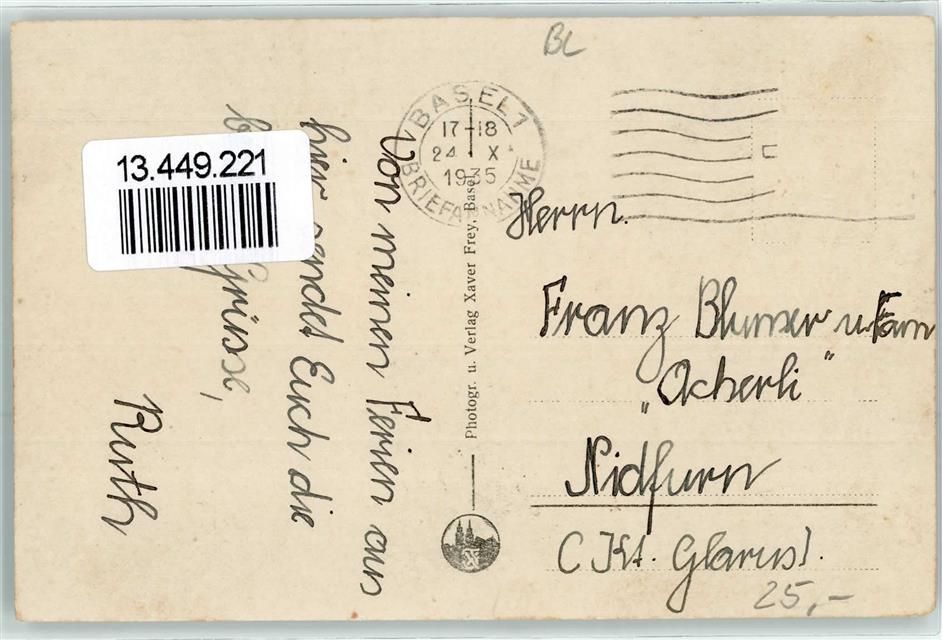 BL
13.449.221
BASEL 1
17-18
24. X
1935
BRIEFANNAHME
Von meinen Ferien aus
hier sendet Euch die
Grüsse,
Ruth
Photogr. u. Verlag Xaver Frey, Basel
Herrn.
Franz Blumer u. Fam
„Acherli"
Nidfurn
(Kt. Glarus).
25,-